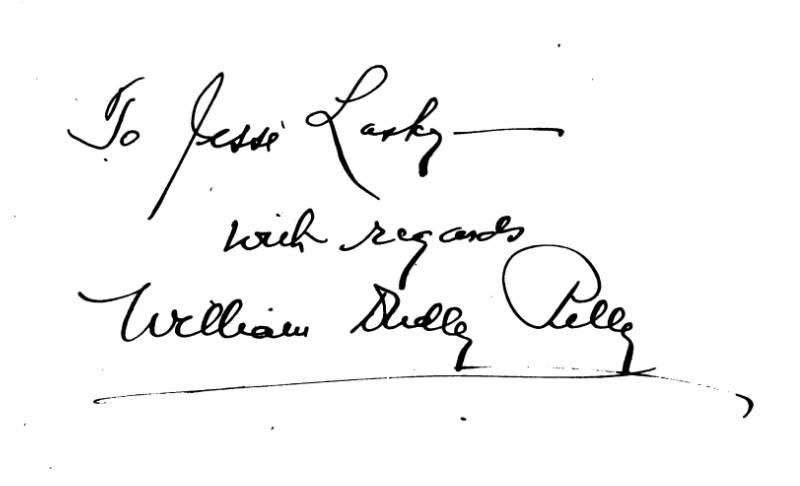 To Jessie Lasky —
with regards
William Dudley Pelley